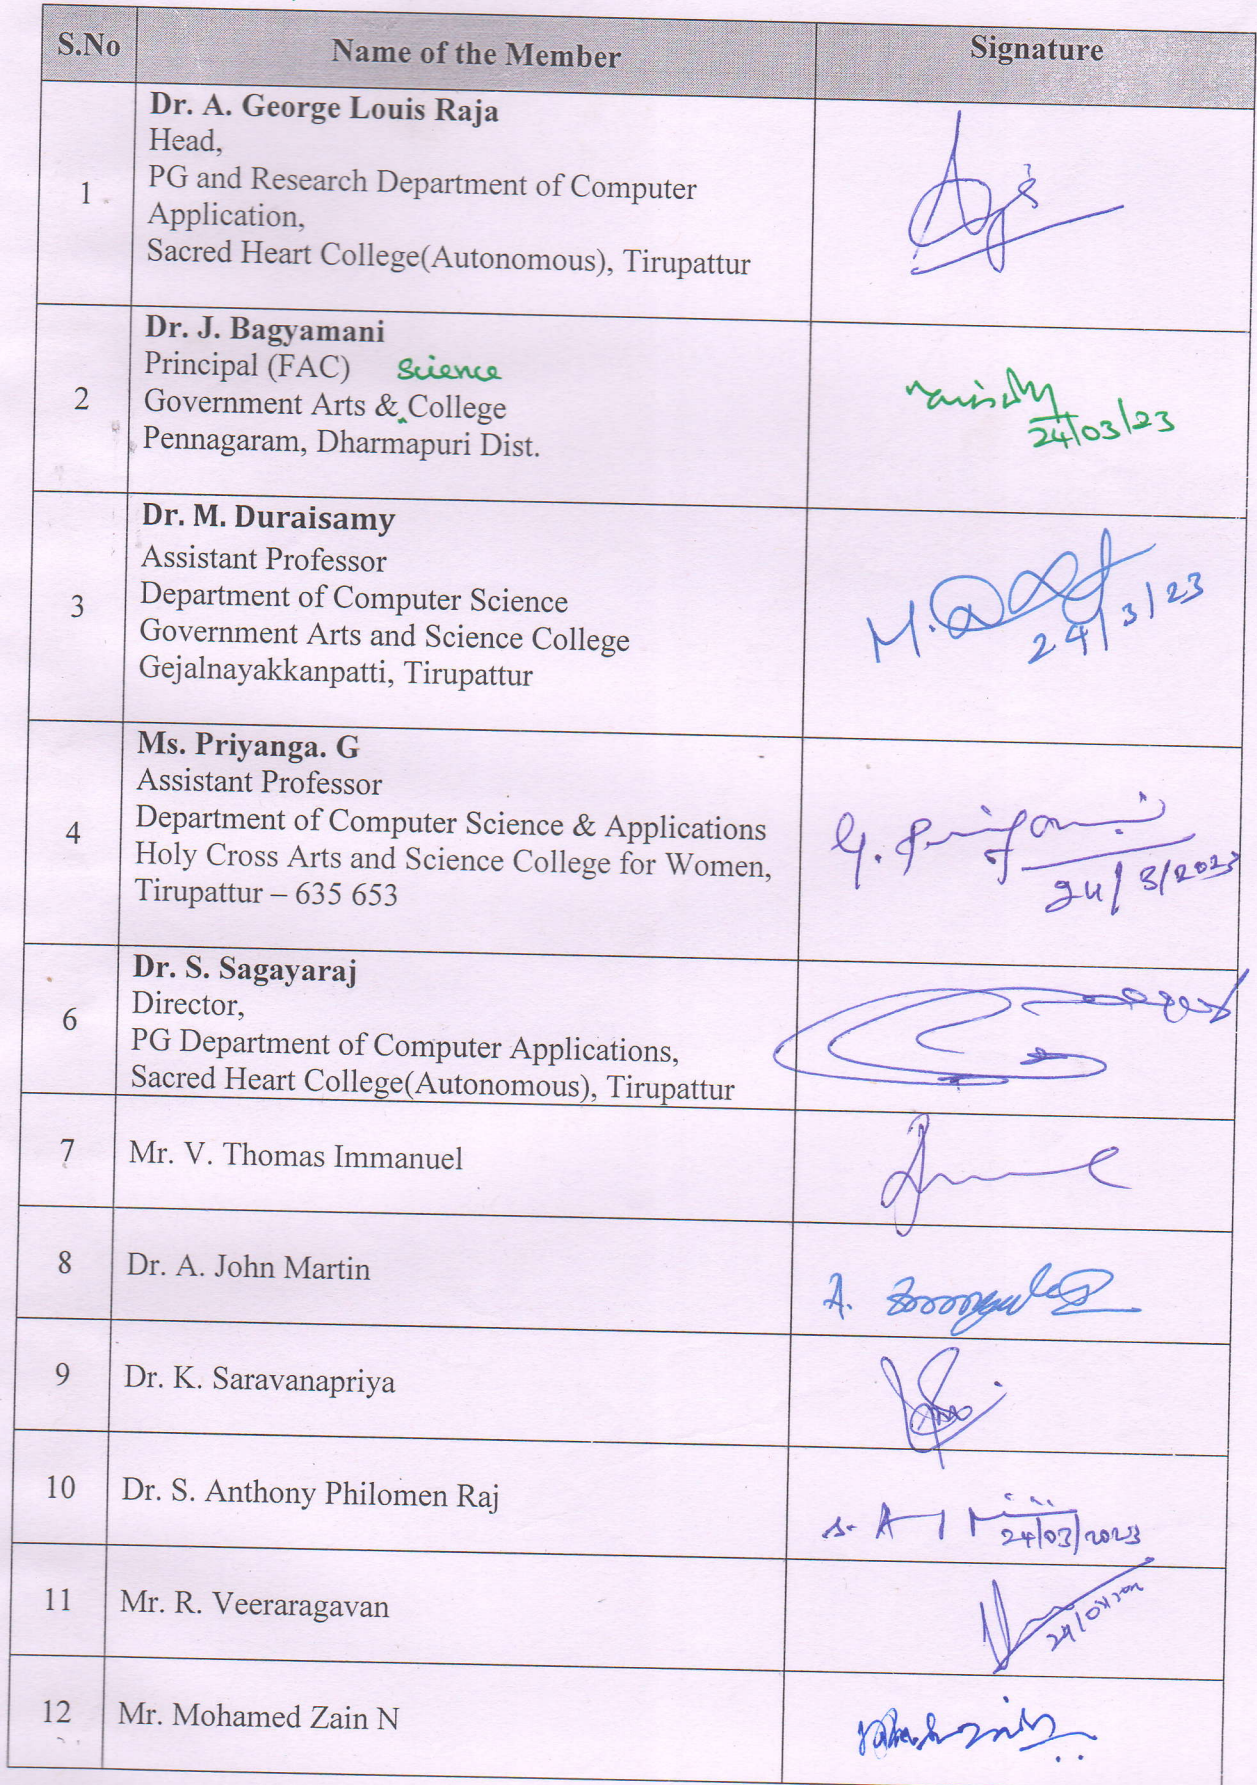 S.No Name of the Member Signature
1
Dr. A. George Louis Raja
Head,
PG and Research Department of Computer
Application,
Sacred Heart College(Autonomous), Tirupattur
2
Dr. J. Bagyamani
Principal (FAC) Science
Government Arts & College
Pennagaram, Dharmapuri Dist.
24/03/23
3
Dr. M. Duraisamy
Assistant Professor
Department of Computer Science
Government Arts and Science College
Gejalnayakkanpatti, Tirupattur
M.
24/3/23
4
Ms. Priyanga. G
Assistant Professor
Department of Computer Science & Applications
Holy Cross Arts and Science College for Women,
Tirupattur – 635 653
G.
24/3/2023
6
Dr. S. Sagayaraj
Director,
PG Department of Computer Applications,
Sacred Heart College(Autonomous), Tirupattur
7 Mr. V. Thomas Immanuel
8 Dr. A. John Martin A.
9 Dr. K. Saravanapriya
10 Dr. S. Anthony Philomen Raj
24/03/2023
11 Mr. R. Veeraragavan
12 Mr. Mohamed Zain N